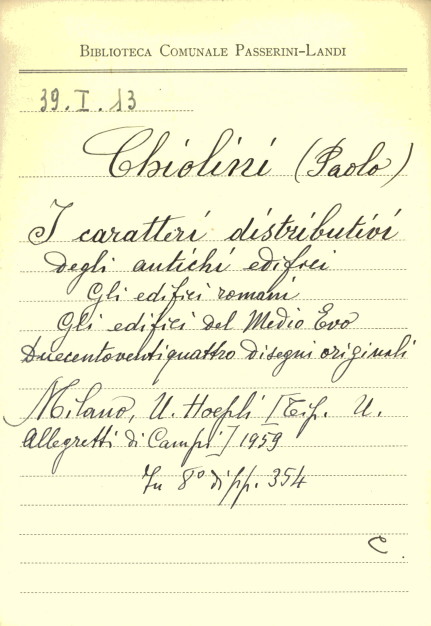 BIBLIOTECA COMUNALE PASSERINI-LANDI
39.I.13
Chiolini (Paolo)
I caratteri distributivi
degli antichi edifici
Gli edifici romani
Gli edifici del Medio Evo
Duecentoventiquattro disegni originali
Milano, U. Hoepli [Tip. U.
Allegretti di Campi] 1959
In 8° di pp. 354
C.